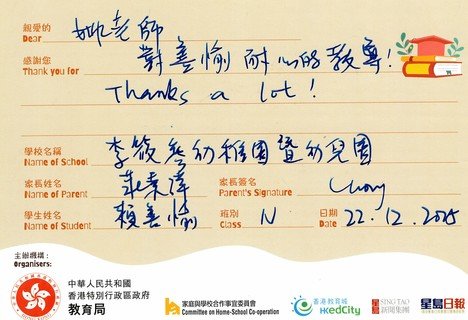 親愛的
Dear 姚老師
感謝您
Thank you for 對善愉耐心的教導!
Thanks a lot!
學校名稱
Name of School 李筱參幼稚園暨幼兒園
家長姓名
Name of Parent 家長簽名
Parent's Signature
學生姓名
Name of Student 賴善愉 班別
Class N 日期
Date 22.12.2025
主辦機構:
Organisers:
中華人民共和國
香港特別行政區政府
教育局
家庭與學校合作事宜委員會
Committee on Home-School Co-operation
香港教育城
HKedCity
星島 SING TAO
新聞集團
星島日報